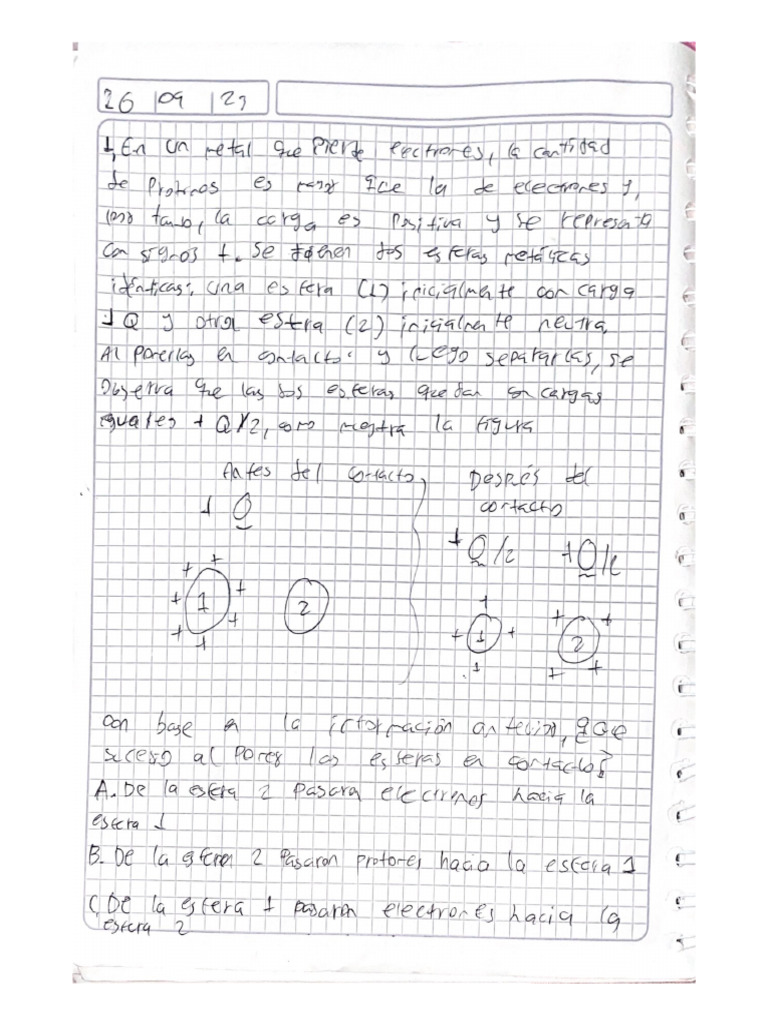 26 | 09 | 23
1, En un metal que pierde electrones, la cantidad
de Protones es mayor que la de electrones y,
como tanto, la carga es Positiva y se representa
con signos +. Se tienen dos esferas metálicas
idénticas: una esfera (1) inicialmente con carga
+Q y otra esfera (2) inicialmente neutra.
Al ponerlas en contacto y luego separarlas, se
Observa que las dos esferas quedan con cargas
iguales + Q/2, como muestra la figura
Antes del contacto, Después del
contacto
+ Q
+Q/2 +Q/2
1 2 1 2
con base en la información anterior, que
suceso al poner las esferas en contacto?
A. De la esfera 2 pasaran electrones hacia la
esfera 1
B. De la esfera 2 pasaron protones hacia la esfera 1
C, De la esfera 1 pasaron electrones hacia la
esfera 2